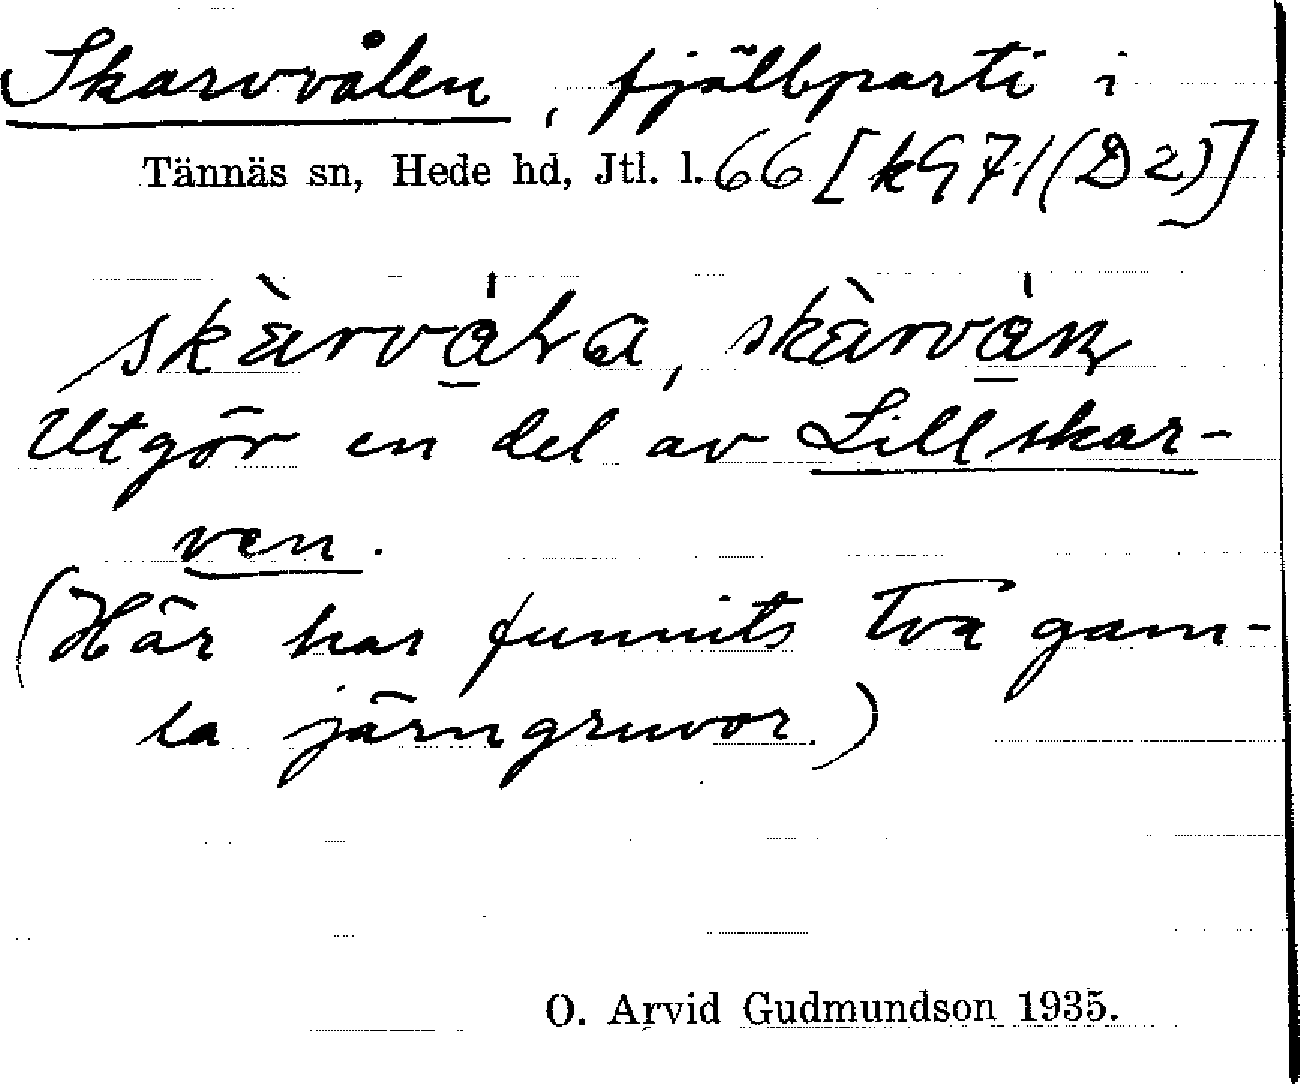 Skarvvålen, fjällparti i
Tännäs sn, Hede hd, Jtl. l. 66 [k971(D2)]
Utgör en del av Lillskar-
ven.
(Här har funnits två gam-
la järngruvor.)
O. Arvid Gudmundson 1935.